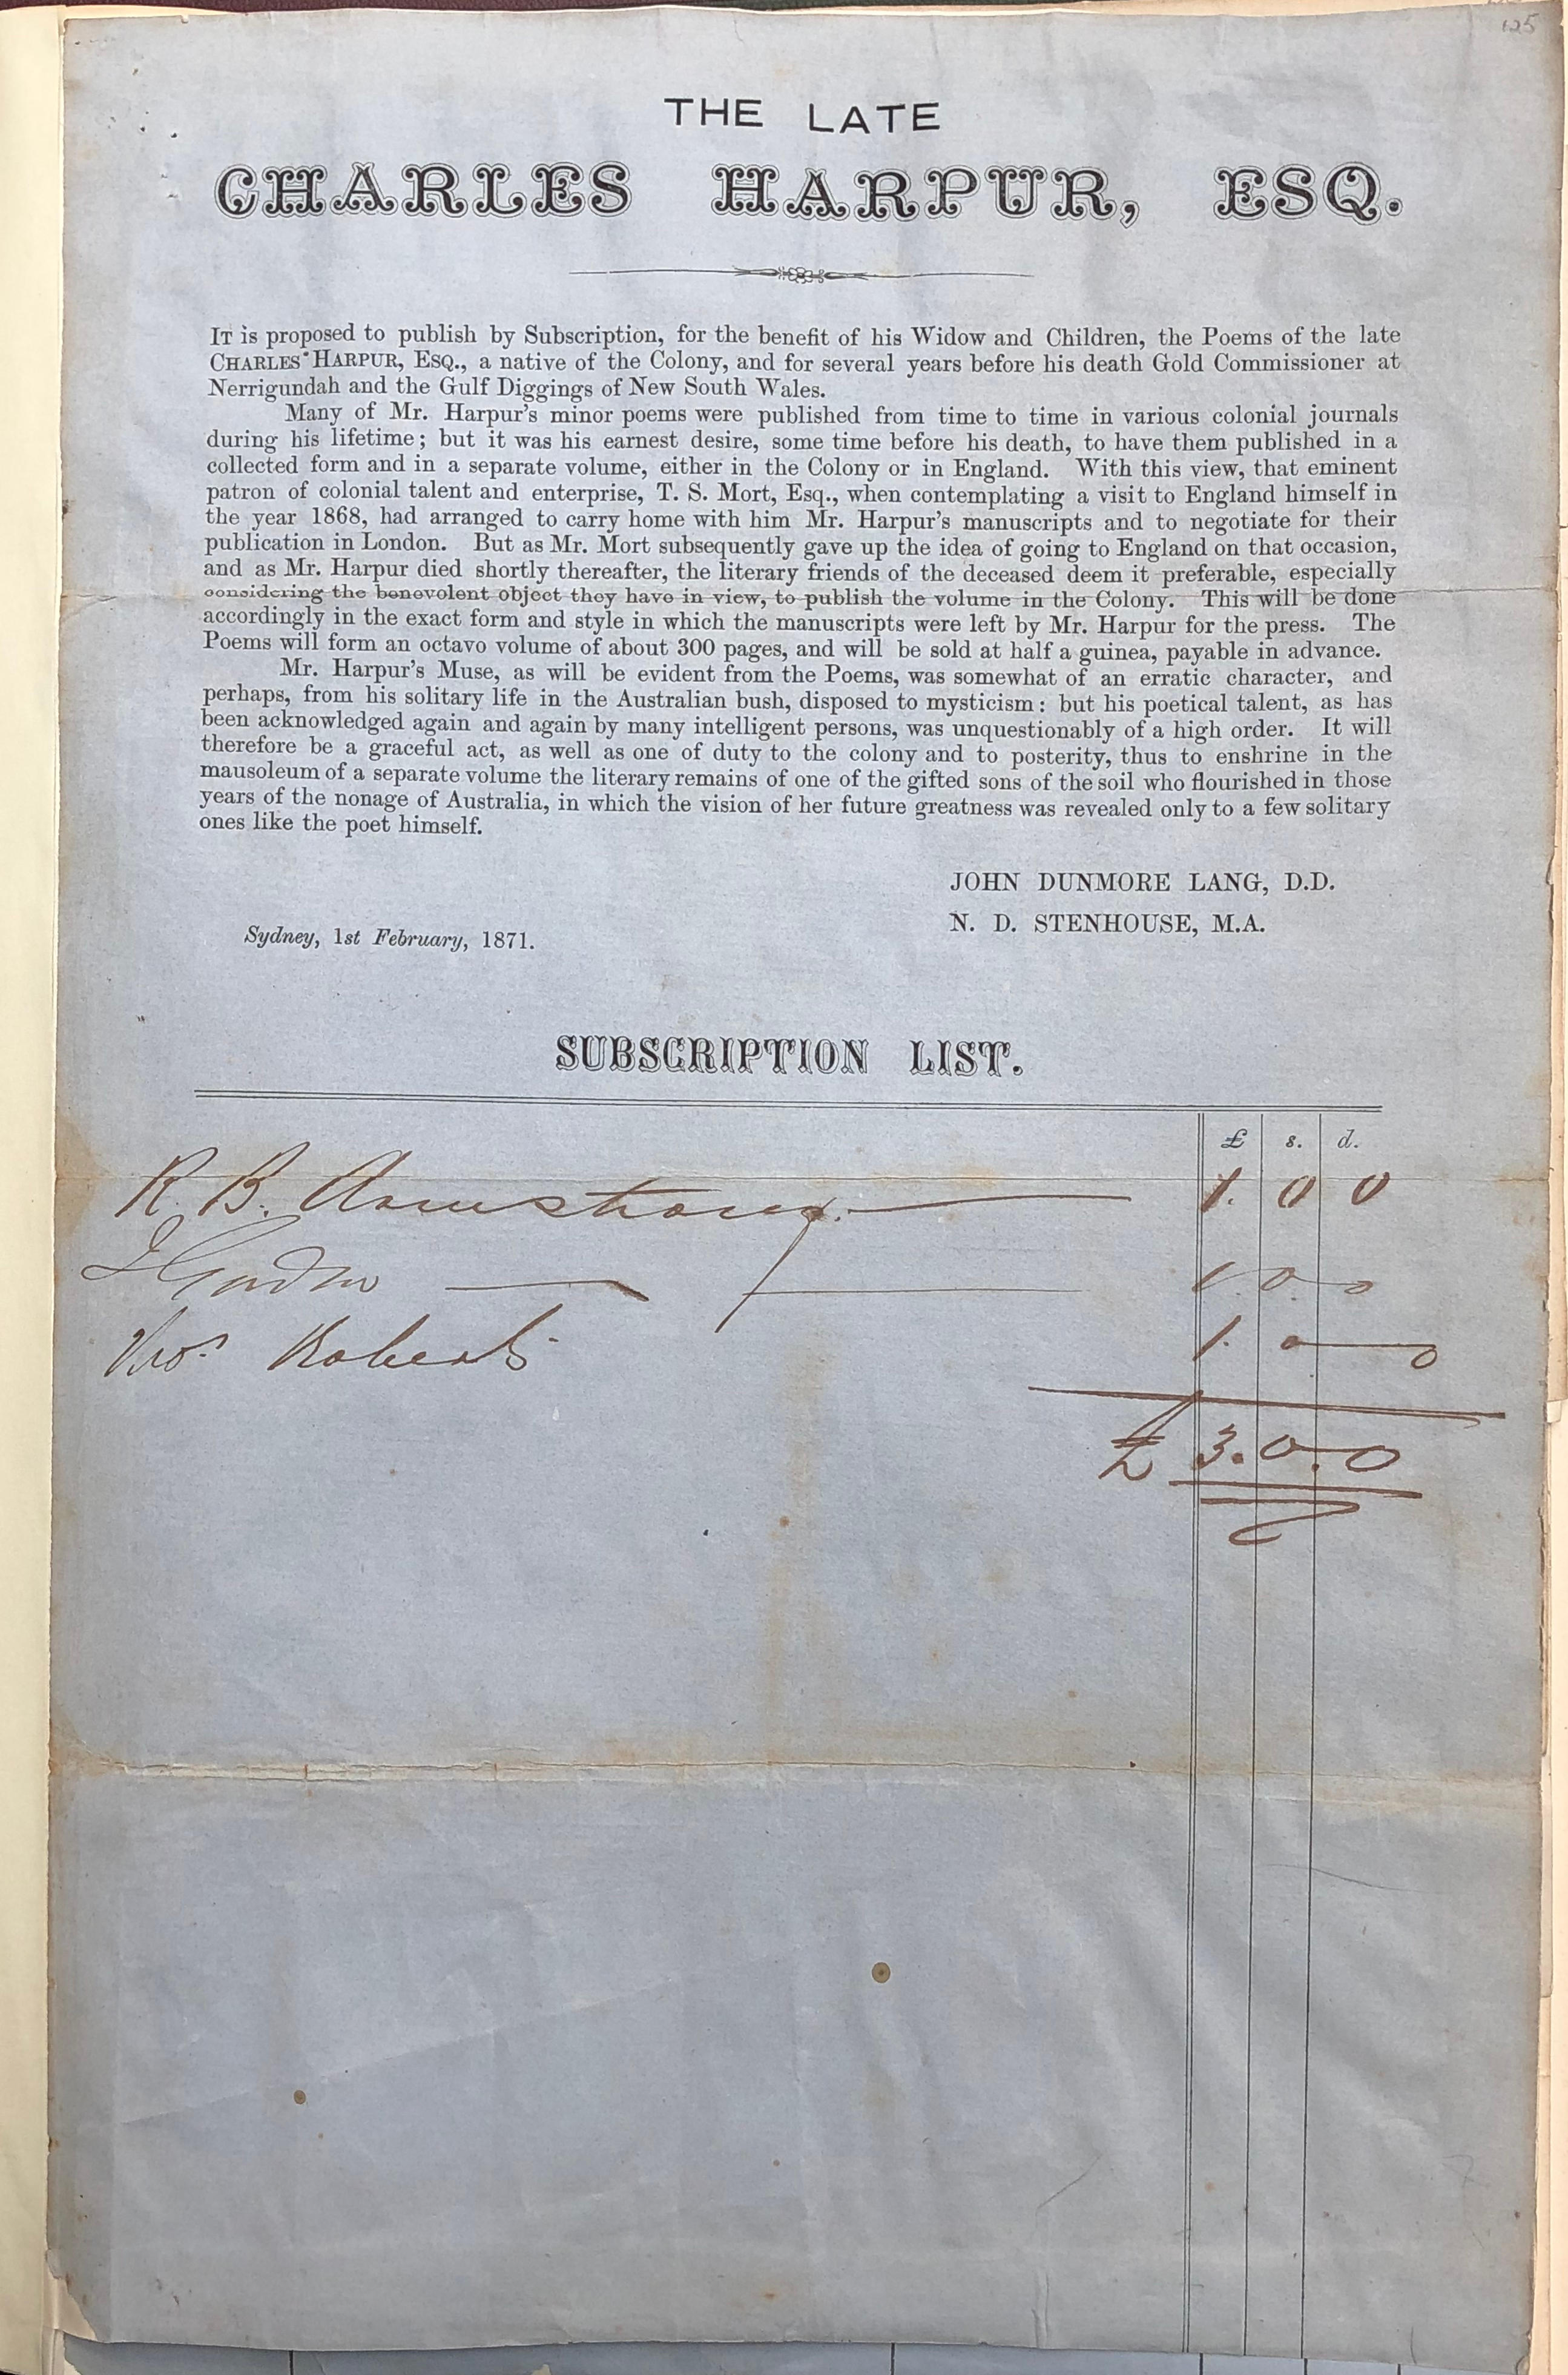 125
THE LATE
CHARLES HARPUR, ESQ.
IT is proposed to publish by Subscription, for the benefit of his Widow and Children, the Poems of the late
CHARLES HARPUR, ESQ., a native of the Colony, and for several years before his death Gold Commissioner at
Nerrigundah and the Gulf Diggings of New South Wales.
Many of Mr. Harpur's minor poems were published from time to time in various colonial journals
during his lifetime; but it was his earnest desire, some time before his death, to have them published in a
collected form and in a separate volume, either in the Colony or in England. With this view, that eminent
patron of colonial talent and enterprise, T. S. Mort, Esq., when contemplating a visit to England himself in
the year 1868, had arranged to carry home with him Mr. Harpur's manuscripts and to negotiate for their
publication in London. But as Mr. Mort subsequently gave up the idea of going to England on that occasion,
and as Mr. Harpur died shortly thereafter, the literary friends of the deceased deem it preferable, especially
considering the benevolent object they have in view, to publish the volume in the Colony. This will be done
accordingly in the exact form and style in which the manuscripts were left by Mr. Harpur for the press. The
Poems will form an octavo volume of about 300 pages, and will be sold at half a guinea, payable in advance.
Mr. Harpur's Muse, as will be evident from the Poems, was somewhat of an erratic character, and
perhaps, from his solitary life in the Australian bush, disposed to mysticism: but his poetical talent, as has
been acknowledged again and again by many intelligent persons, was unquestionably of a high order. It will
therefore be a graceful act, as well as one of duty to the colony and to posterity, thus to enshrine in the
mausoleum of a separate volume the literary remains of one of the gifted sons of the soil who flourished in those
years of the nonage of Australia, in which the vision of her future greatness was revealed only to a few solitary
ones like the poet himself.
JOHN DUNMORE LANG, D.D.
N. D. STENHOUSE, M.A.
Sydney, 1st February, 1871.
SUBSCRIPTION LIST.
£ s. d.
R. B. Armstrong. 1. 0 0
Gordon 1. 0. 0
Thos. Roberts 1. 0 0
£ 3. 0. 0